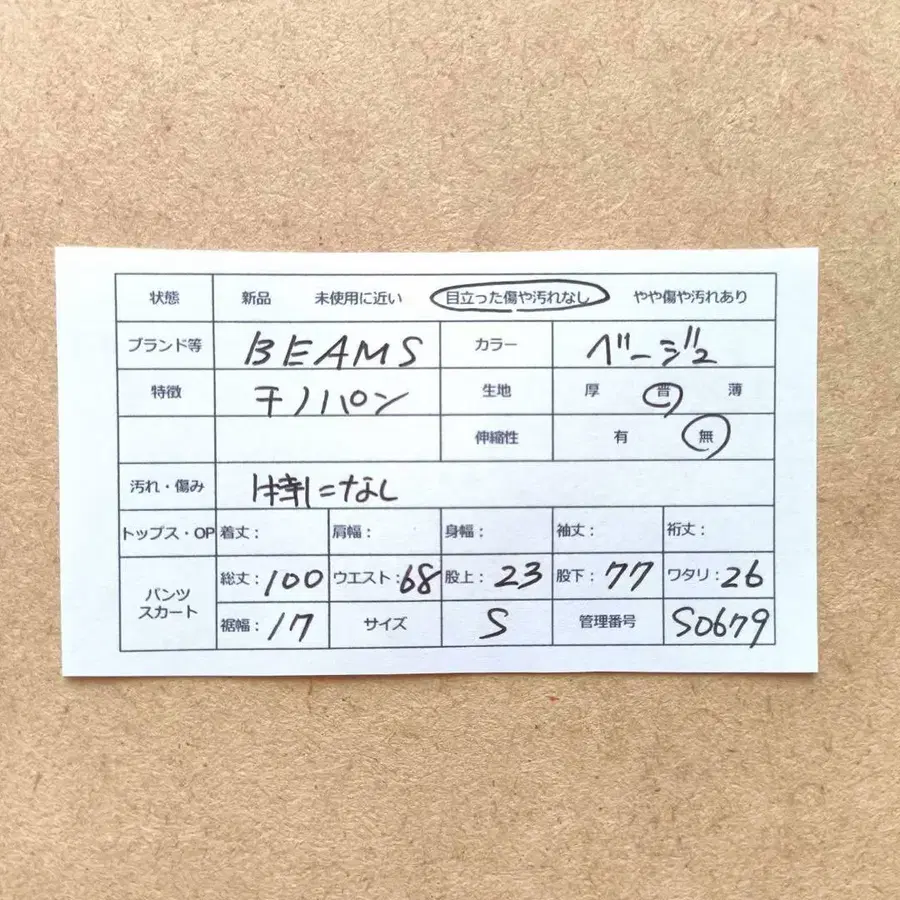 状態 新品 未使用に近い 目立った傷や汚れなし やや傷や汚れあり
ブランド等 BEAMS カラー ベージュ
特徴 チノパン 生地 厚 普 薄
伸縮性 有 無
汚れ・傷み 特になし
トップス・OP 着丈: 肩幅: 身幅: 袖丈: 裄丈:
パンツ スカート 総丈:100 ウエスト:68 股上:23 股下:77 ワタリ:26
裾幅:17 サイズ S 管理番号 S0679